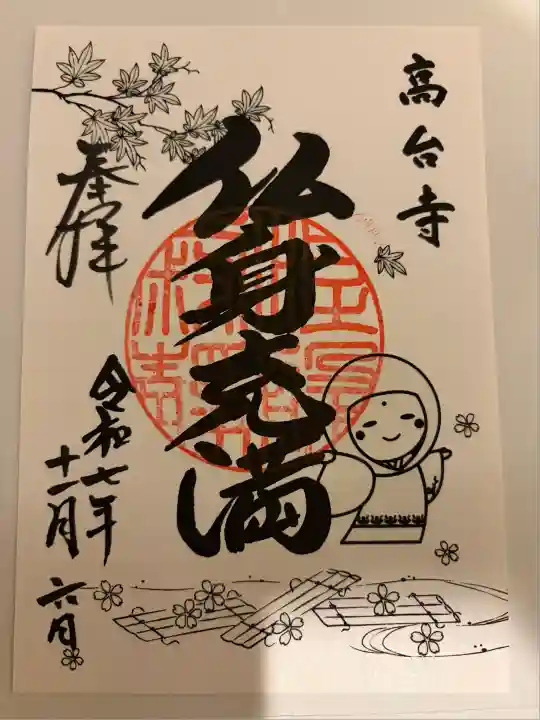 高台寺
仏身充満
奉拝
令和七年
十一月
六日